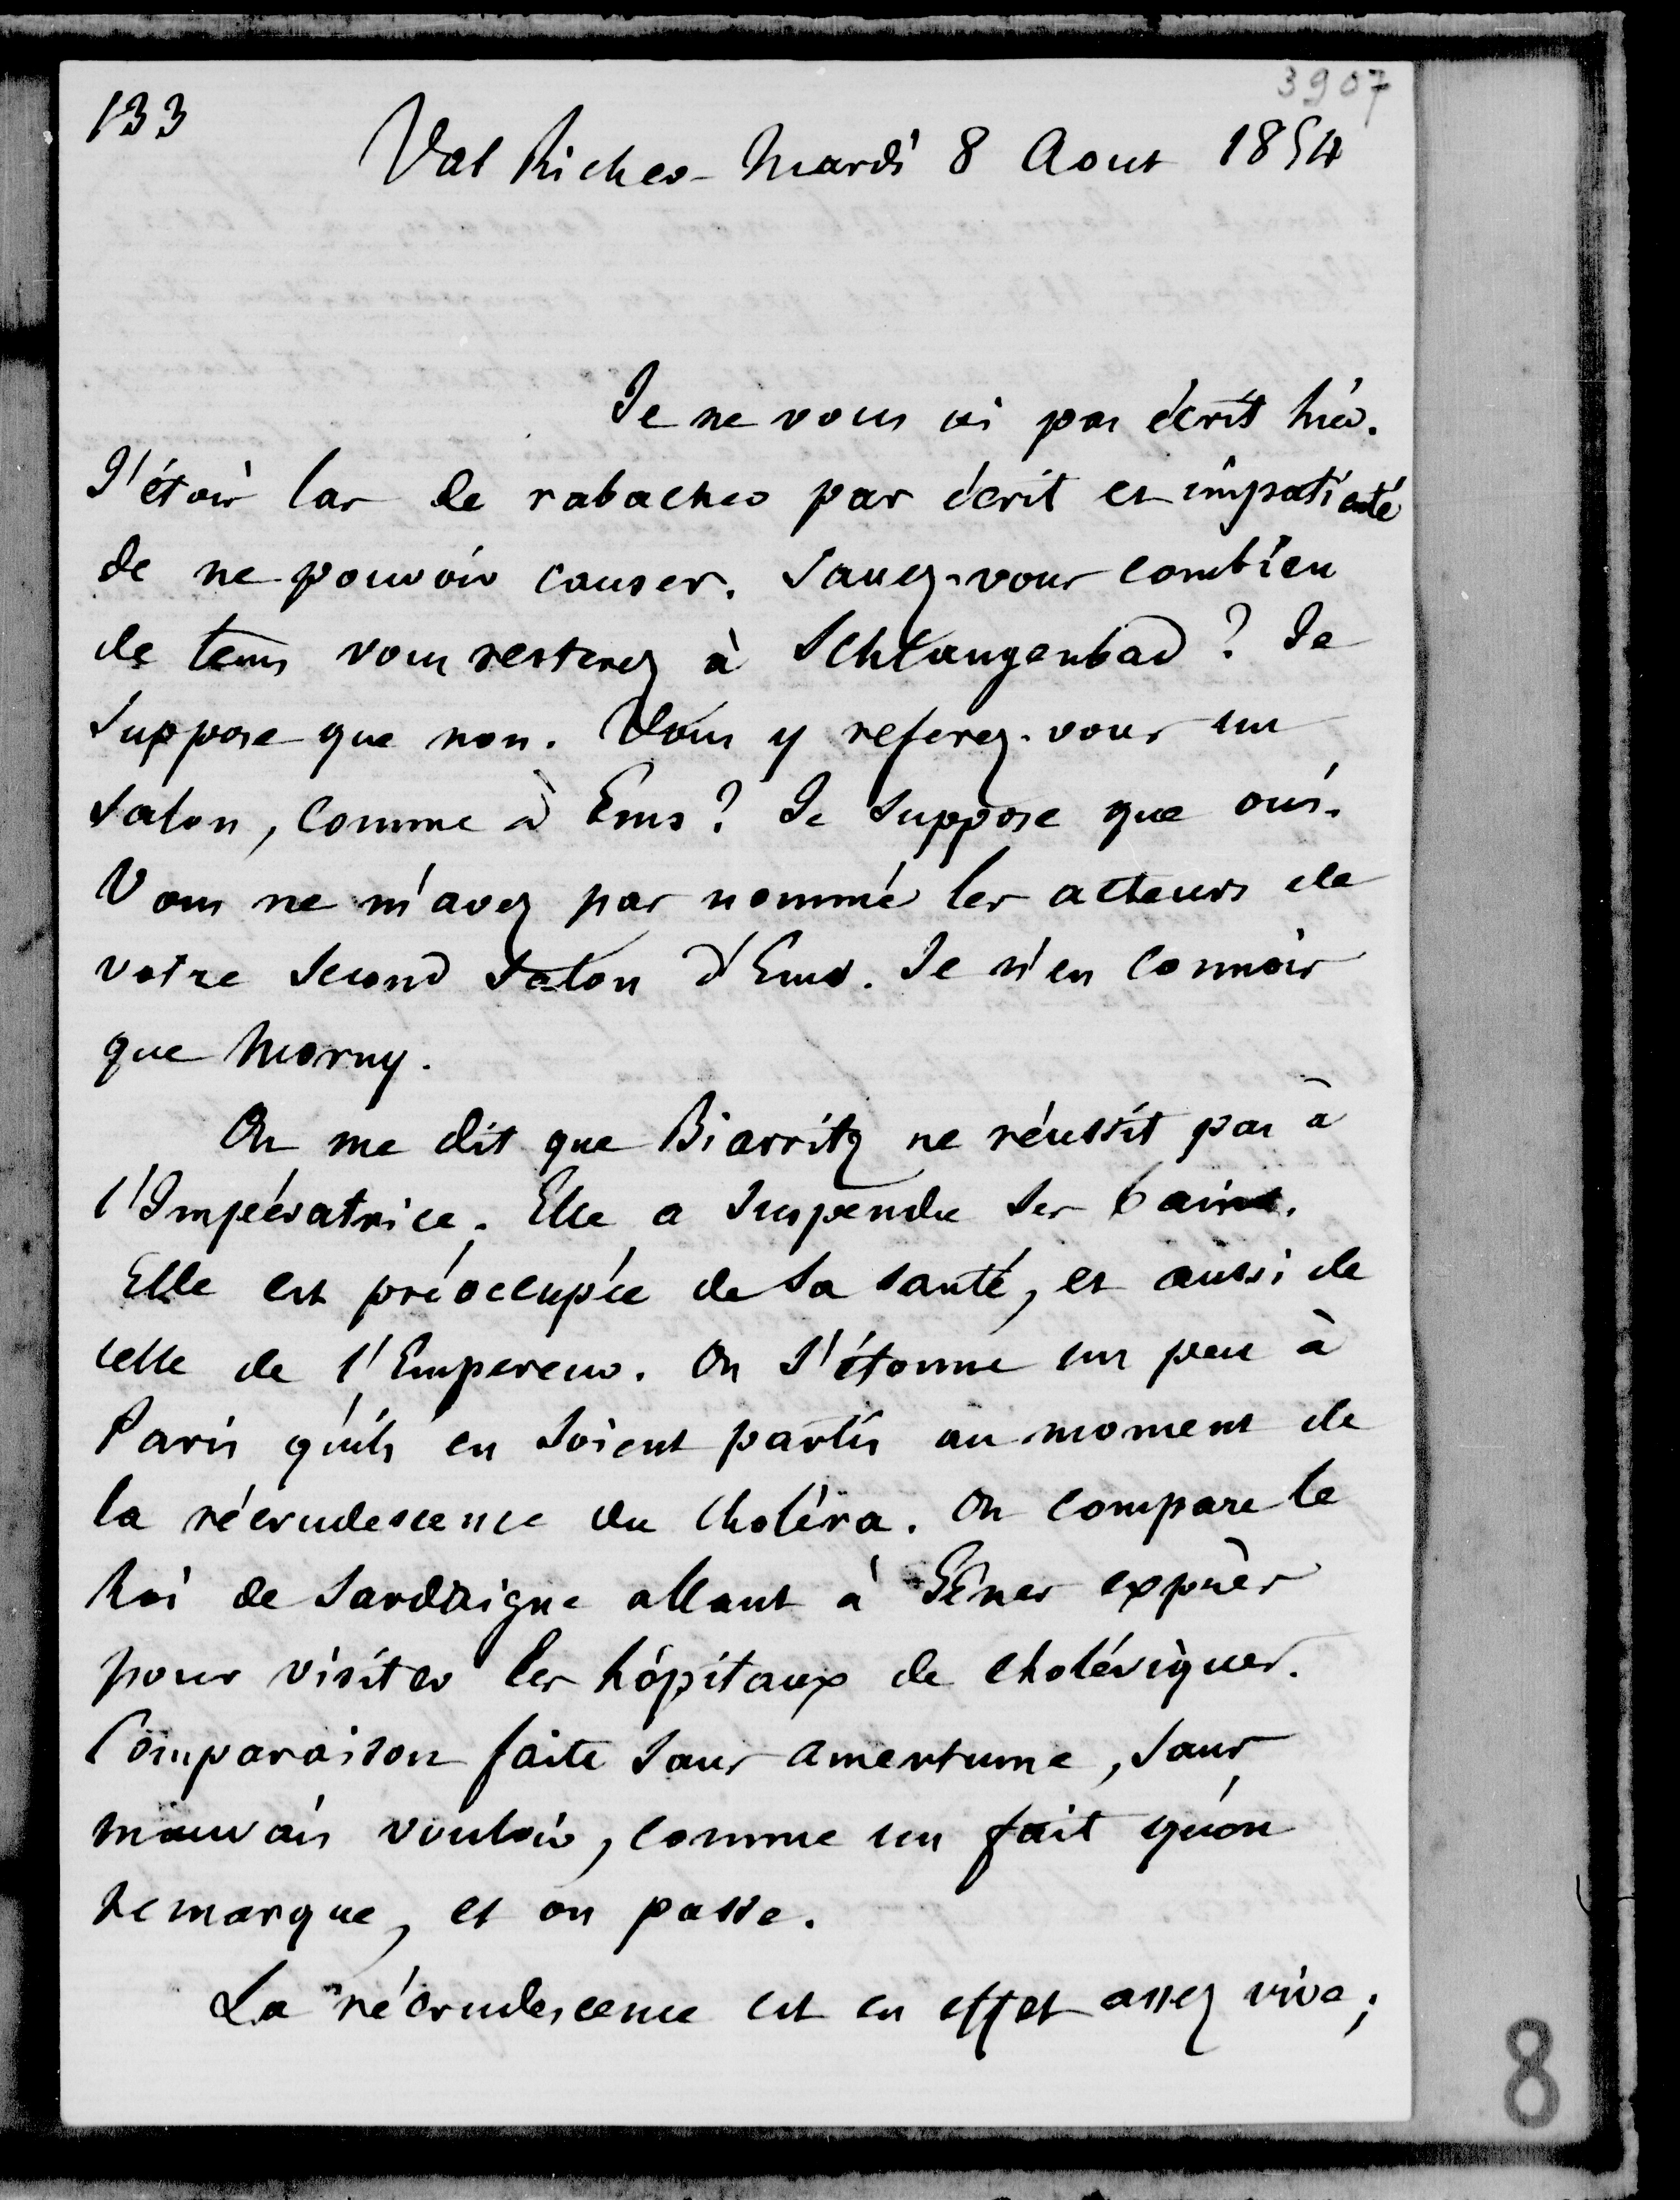 3907
133
Val Richer - Mardi 8 Aout 1854
Je ne vous ai pas écrit hier.
J'étois las de rabacher par écrit et impatienté
de ne pouvoir causer. Savez-vous combien
de tems vous resterez à Schlangenbad ? Je
suppose que non. Vous y referez-vous un
salon, comme à Ems ? Je suppose que oui.
Vous ne m'avez pas nommé les acteurs de
votre second salon d'Ems. Je n'en connois
que Morny.
On me dit que Biarritz ne réussit pas à
l'Impératrice. Elle a suspendu ses bains.
Elle est préoccupée de sa santé, et aussi de
celle de l'Empereur. On s'étonne un peu à
Paris qu'ils en soient partis au moment de
la récrudescence du choléra. On compare le
Roi de Sardaigne allant à Gênes exprès
pour visiter les hôpitaux de cholériques.
Comparaison faite sans amertume, sans
mauvais vouloir, comme un fait qu'on
remarque, et on passe.
La récrudescence est en effet assez vive ;
8